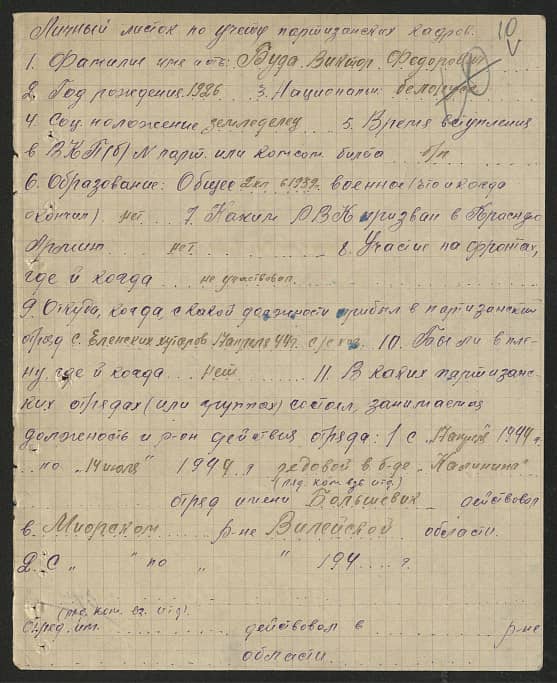 Личный листок по учету партизанских кадров.
10
1. Фамилие имя отч: Буда Виктор Федорович
2. Год рождения 1926 3. Национальн. белорусс
4. Соц. положение земледелец 5. Время вступления
в ВКП(б) N парт. или комсом. билета б/п
6. Образование: Общее 2 кл. в 1939г. военное (что и когда
окончил) нет 7. Каким РВК призван в Красную
Армию нет 8. Участие на фронтах,
где и когда не участвовал
9. Откуда, когда, с какой должности прибыл в партизанский
отряд с. Еленских хуторов 17 апреля 44г. 10. Был ли в пле-
ну, где и когда нет 11. В каких партизанс-
ких отрядах (или группах) состоял, занимаемая
должность и р-он действия отряда: 1 с "апреля" 1944 г.
по "14 июля" 1944 г. редовой в б-де "Калинина"
(ряд. ком. взв. итд.)
отряд имени Большевик действовал
в Миорском р-не Вилейской области.
2. С " " по " " 194 г.
(ряд. ком. вз. итд.)
отряд. им. действовал в р-не
области